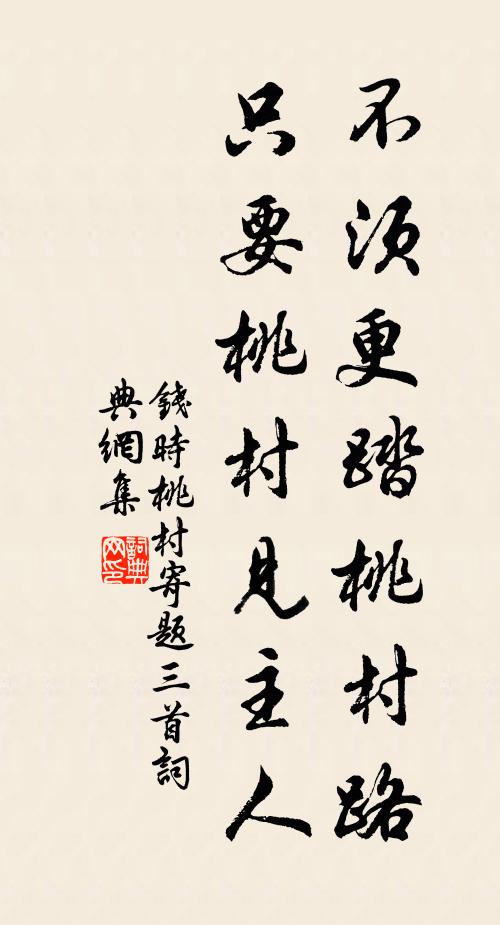 不須更踏桃村路
只要桃村見主人
錢時桃村寄題三首詞
典網集
詞典网印